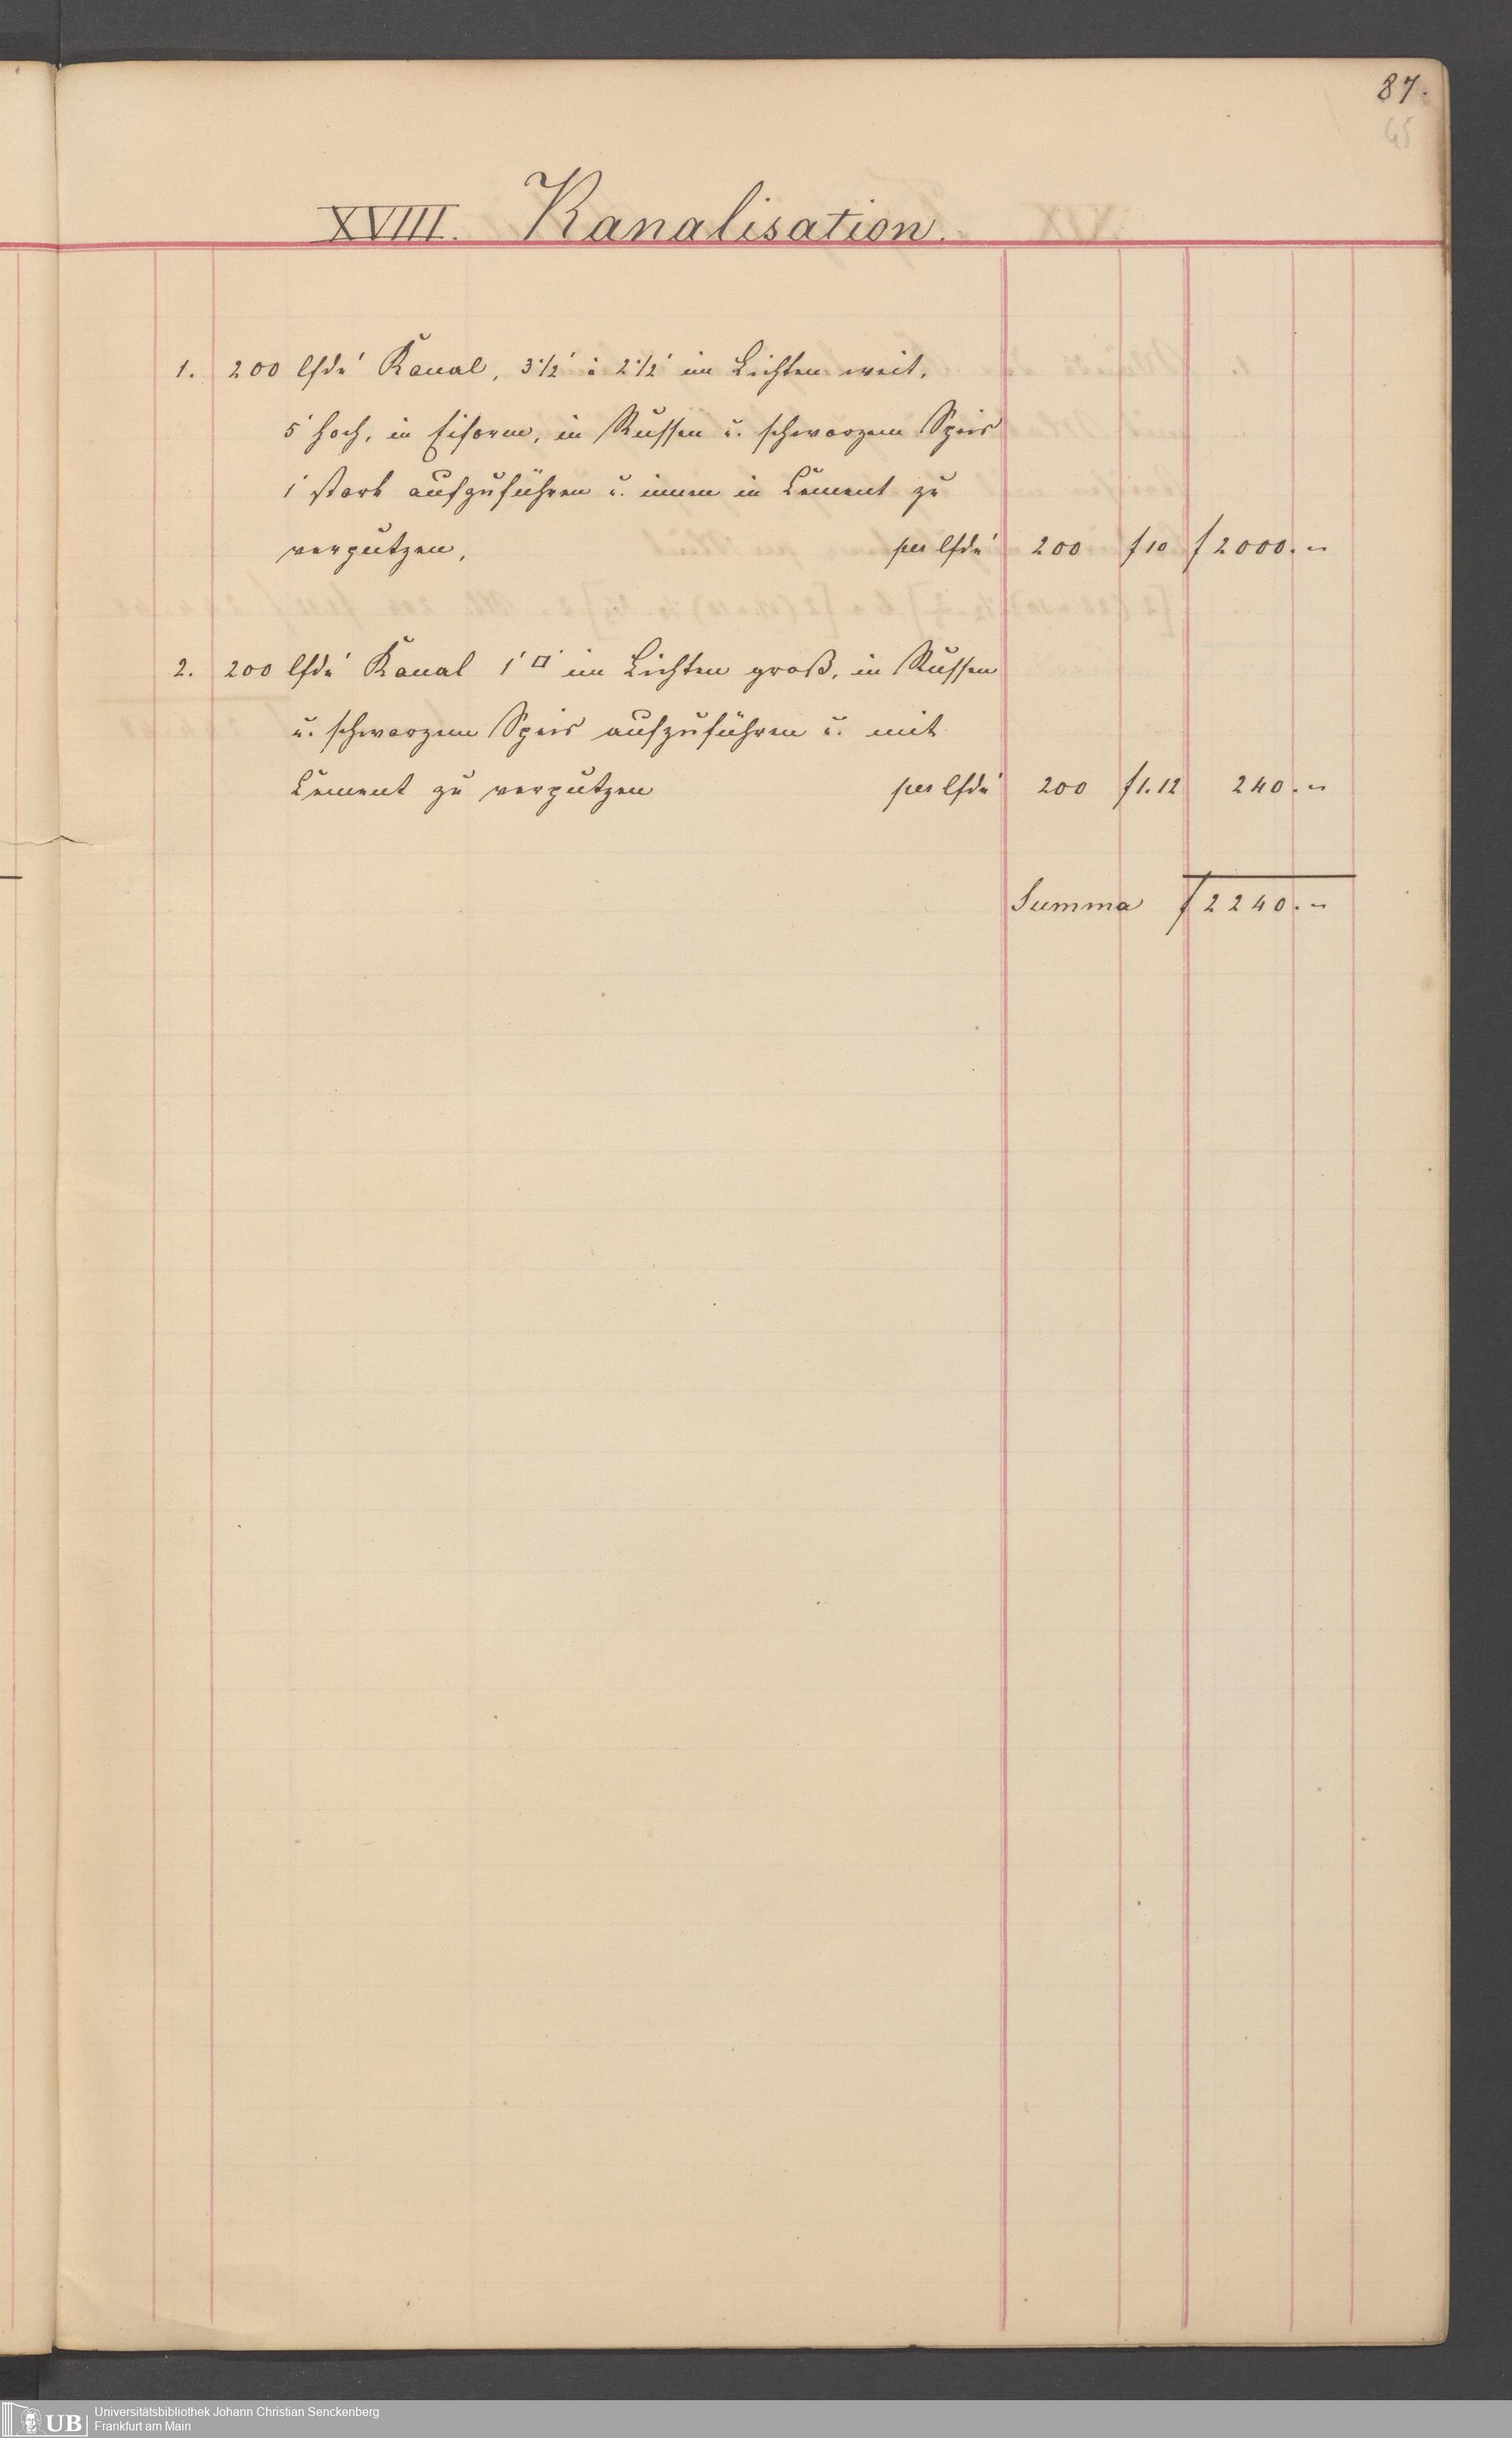 87.
45
XVIII. Kanalisation.
1. 200 lfde' Kanal, 3 1/2' : 2 1/2' im Lichten weit,
5' hoch, in Eiform, in Russen u. schwarzem Speis
1' stark aufzuführen u. innen in Cement zu
verputzen, per lfde' 200 f 10 f 2000. "
2. 200 lfde' Kanal 1' □' im Lichten groß, in Russen
u. schwarzem Speis aufzuführen u. mit
Cement zu verputzen per lfde' 200 f 1.12 240. "
Summa f 2240. "
UB
Universitätsbibliothek Johann Christian Senckenberg
Frankfurt am Main